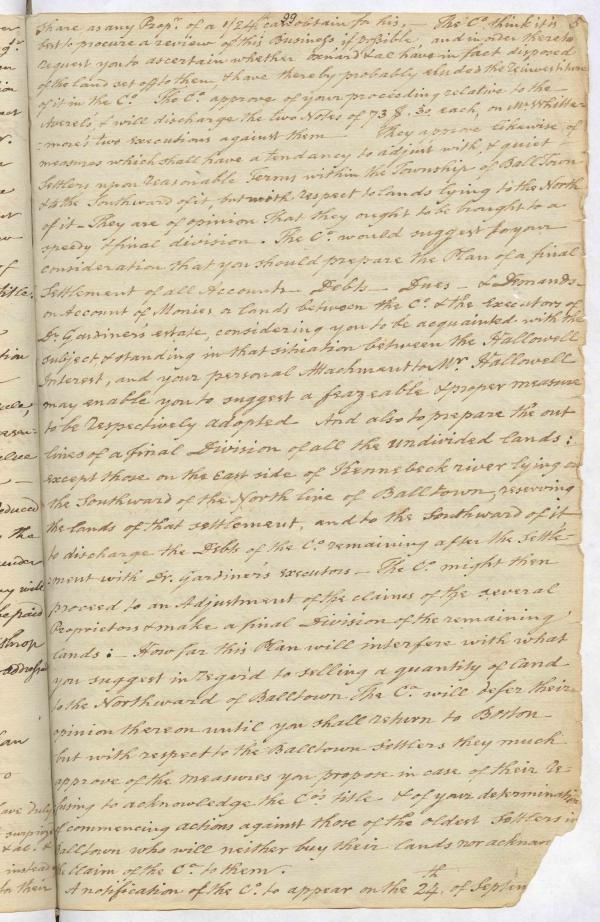 99
share as any Propr. of a 1/24th can obtain for his, — The Co. think it is
best to procure a review of this Business if possible, and in order thereto
request you to ascertain whether Benard &ca. have in fact disposed
of the land set off to them, & have thereby probably eluded the reinvestiture
of it in the Co. The Co. approve of your proceeding relative to the
Averel's, & will discharge the two Notes of 73 $. 30, each, on Mr. Whitte-
-more's two executions against them — They approve likewise of
measures which shall have a tendancy to adjust with, & quiet —
Settlers upon reasonable Terms within the Township of Balltown
& to the Southward of it, but with respect to lands lying to the North
of it — They are of opinion that they ought to be brought to a
speedy & final division. The Co. would suggest to your
consideration that you should prepare the Plan of a final
Settlement of all Accounts Debts — Dues — & Demands —
on Account of Monies or lands between the Co. & the Executors of
Dr. Gardiner's estate, considering you to be acquainted with the
subject & standing in that situation between the Hallowell
Interest, and your personal Attachment to Mr. Hallowell
may enable you to suggest a frazeable & proper measure
to be respectively adopted And also to prepare the out
lines of a final Division of all the undivided lands:
except those on the East side of Kennebeck river lying on
the Southward of the North line of Balltown, reserving
the lands of that settlement, and to the Southward of it
to discharge the Debts of the Co. remaining after the settle-
-ment with Dr. Gardiner's executors — The Co. might then
proceed to an Adjustment of the claims of the several
Proprietors & make a final Division of the remaining
lands: — How far this Plan will interfere with what
you suggest in regard to selling a quantity of land
to the Northward of Balltown The Co. will defer their
opinion thereon until you shall return to Boston —
but with respect to the Balltown settlers they much
approve of the measures you propose in case of their re-
fusing to acknowledge the Co's title & of your determination
of commencing actions against those of the oldest settlers in
Balltown who will neither buy their lands nor acknow
the claim of the Co. to them.
A notification of the Co. to appear on the 24th. of Septem